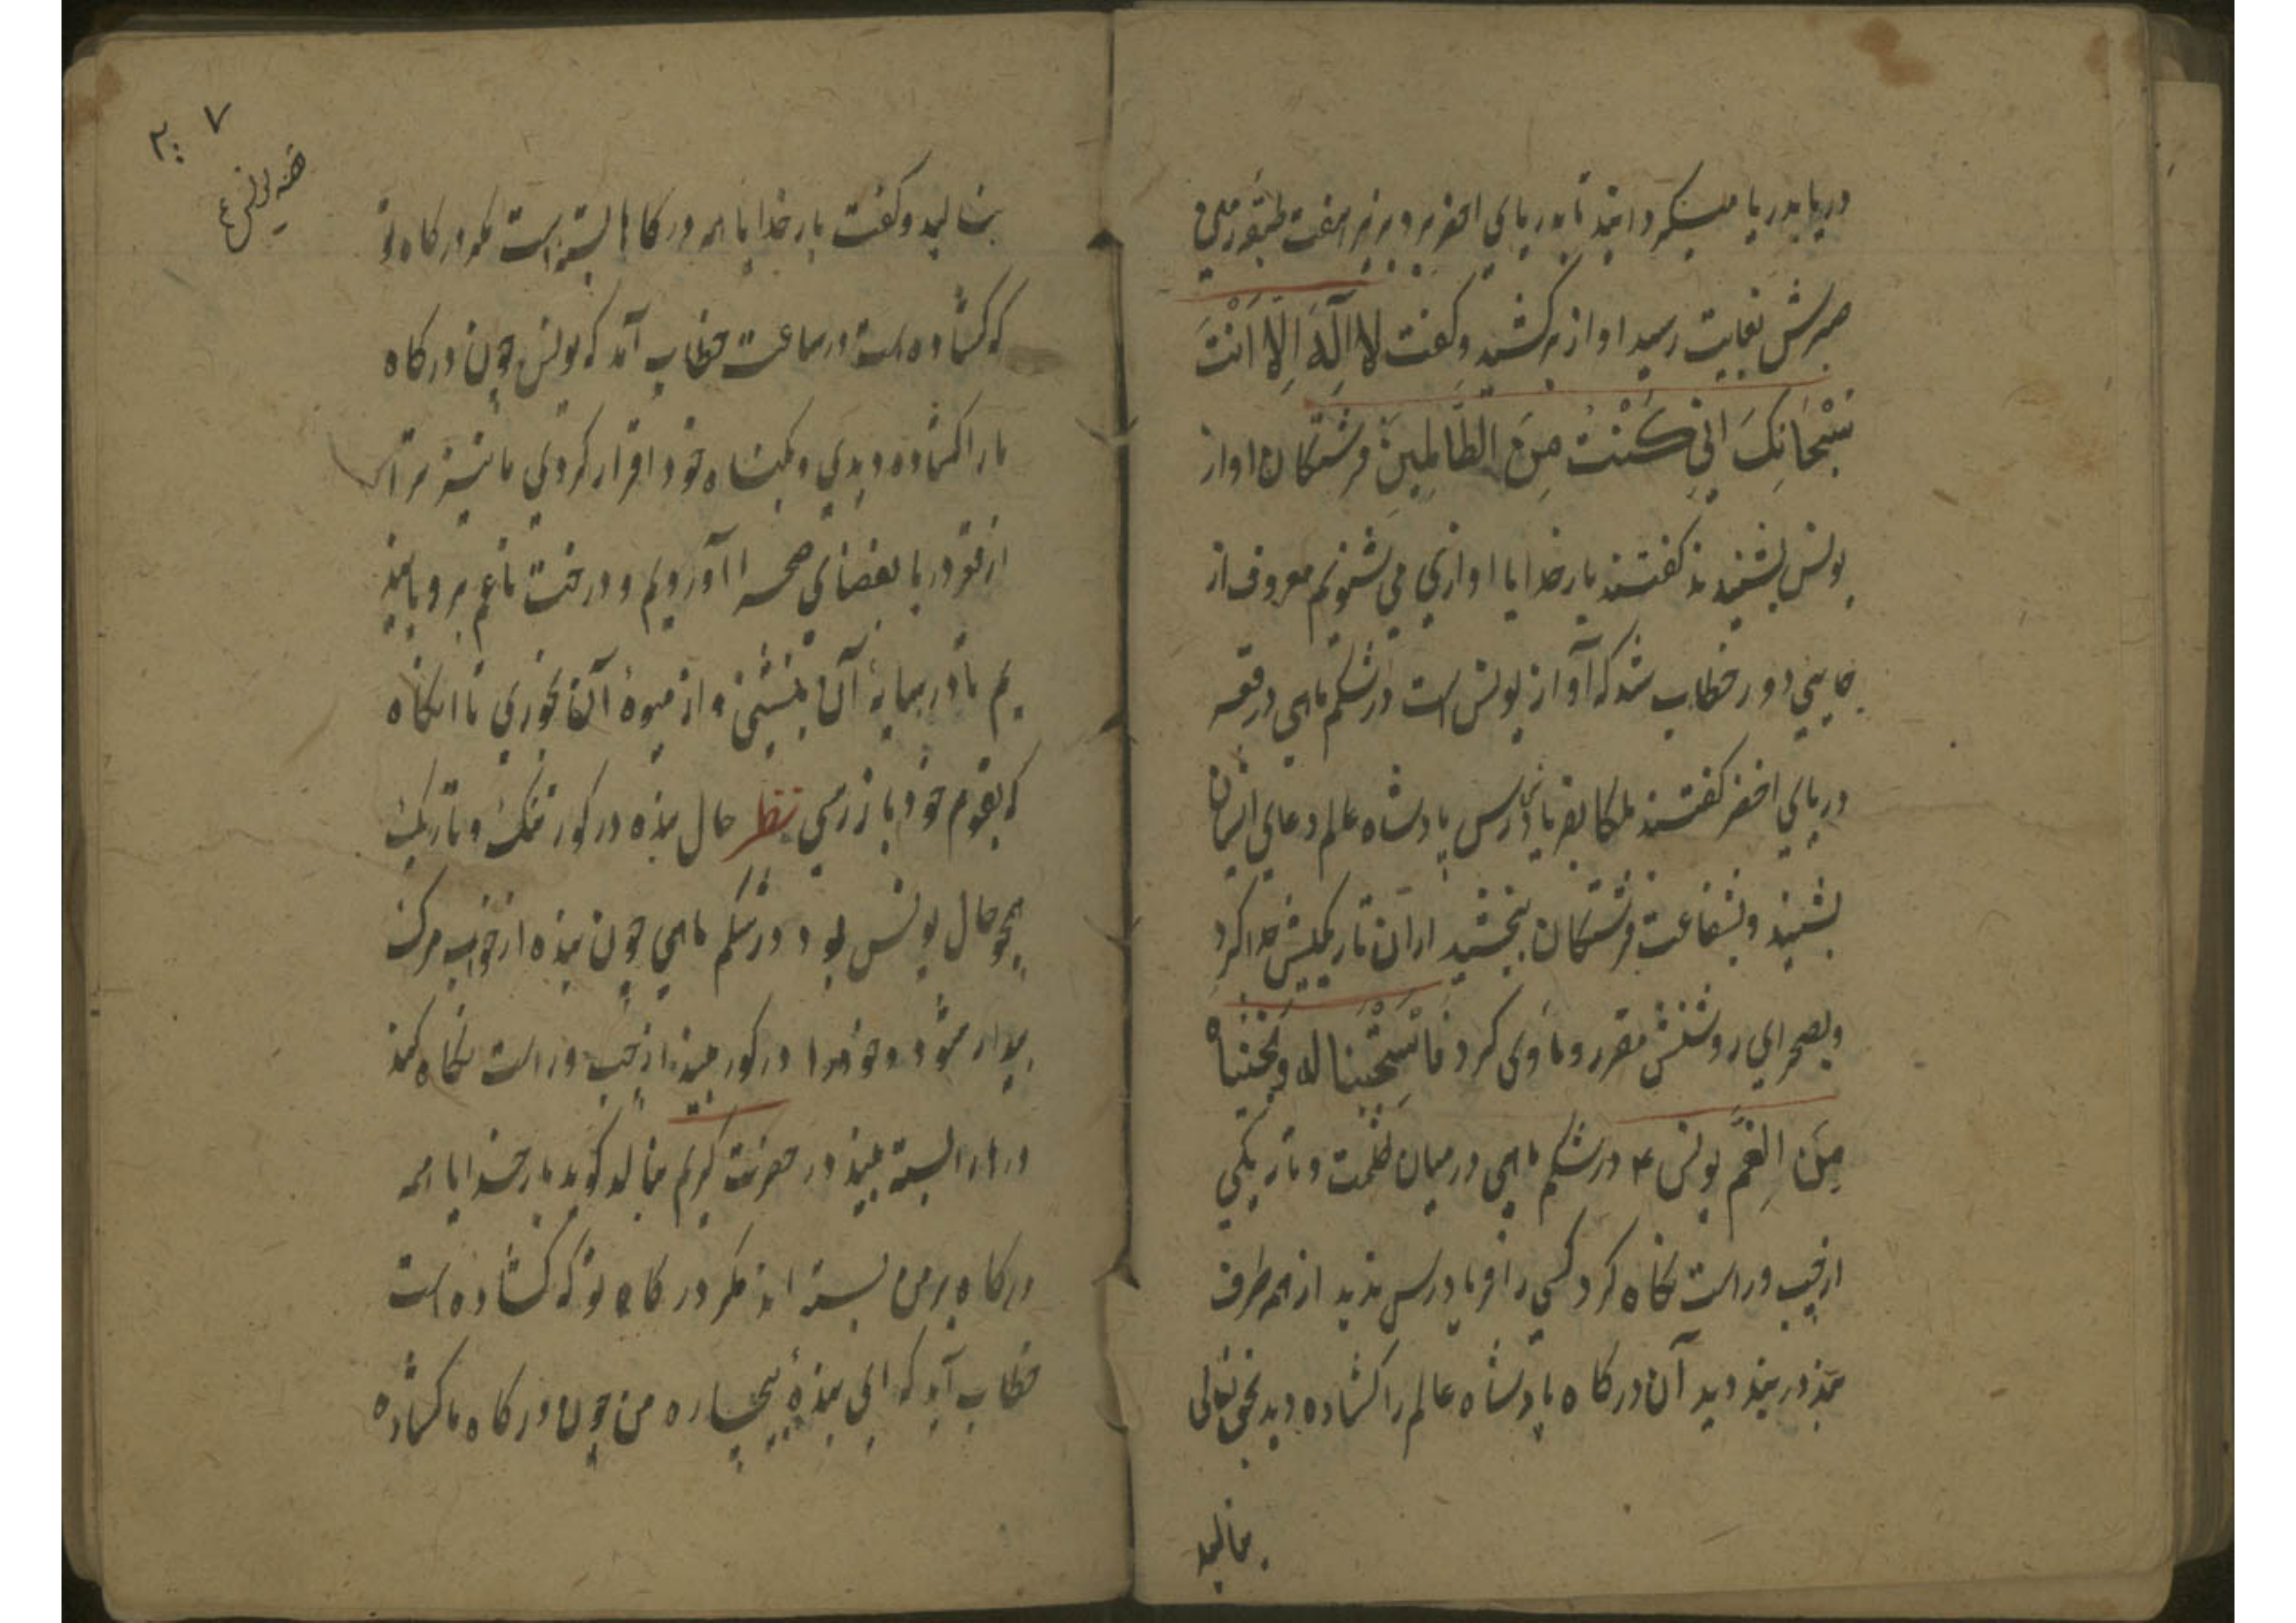 دریا بدریا میکردانید تا بدریای اخضر برد بزیر هفت طبقه زمین
صبرش بغایت رسید اواز برکشید وکفت لا اله الا انت
سبحانک انی کنت من الظالمین فرشتکان اواز
یونس بشنیدند کفتند بار خدایا اوازی می شنویم معروف از
جایی دور خطاب شد که آواز یونس است درشکم ماهی درقعر
دریای اخضر کفتند ملکا بفریادش رس پادشاه عالم دعای ایشان
بشنید وبشفاعت فرشتکان ببخشید ازان تاریکیش جدا کرد
وبصحرای روشنش مقرر وماوی کرد فاستجبنا له ونجیناه
من الغم یونس ع درشکم ماهی درمیان ظلمت وتاریکی
ازچپ وراست نکاه کرد کسی را فریادرس ندید از همه طرف
بند در بند دید آن درکاه پادشاه عالم را کشاده دید بحق تعالی
بنالید
۲۰۷
قصه یونس ع
بنالید وکفت بار خدایا همه درکاها بسته است مکر درکاه تو
که کشاده است درساعت خطاب آمد که یونس چون درکاه
ما را کشاده دیدی وبکناه خود اقرار کردی ما نیز ترا
ازقعر دریا بفضای صحرا آوردیم و درخت ناعم برویانید
یم تا درسایه آن بنشینی و از میوهٔ آن بخوری تا انکاه
که بقوم خود باز رسی نظر حال بنده در کور تنک وتاریک
همچو حال یونس بود درشکم ماهی چون بنده ازخواب مرک
بیدار شود وخود را درکور بیند ازچپ وراست نکاه کند
درها را بسته بیند در حضرت کریم بنالد کوید بار خدایا همه
درکاه برمن بسته اند مکر درکاه تو که کشاده است
خطاب آید که ای بندهٔ بیچاره من چون درکاه ما کشاده